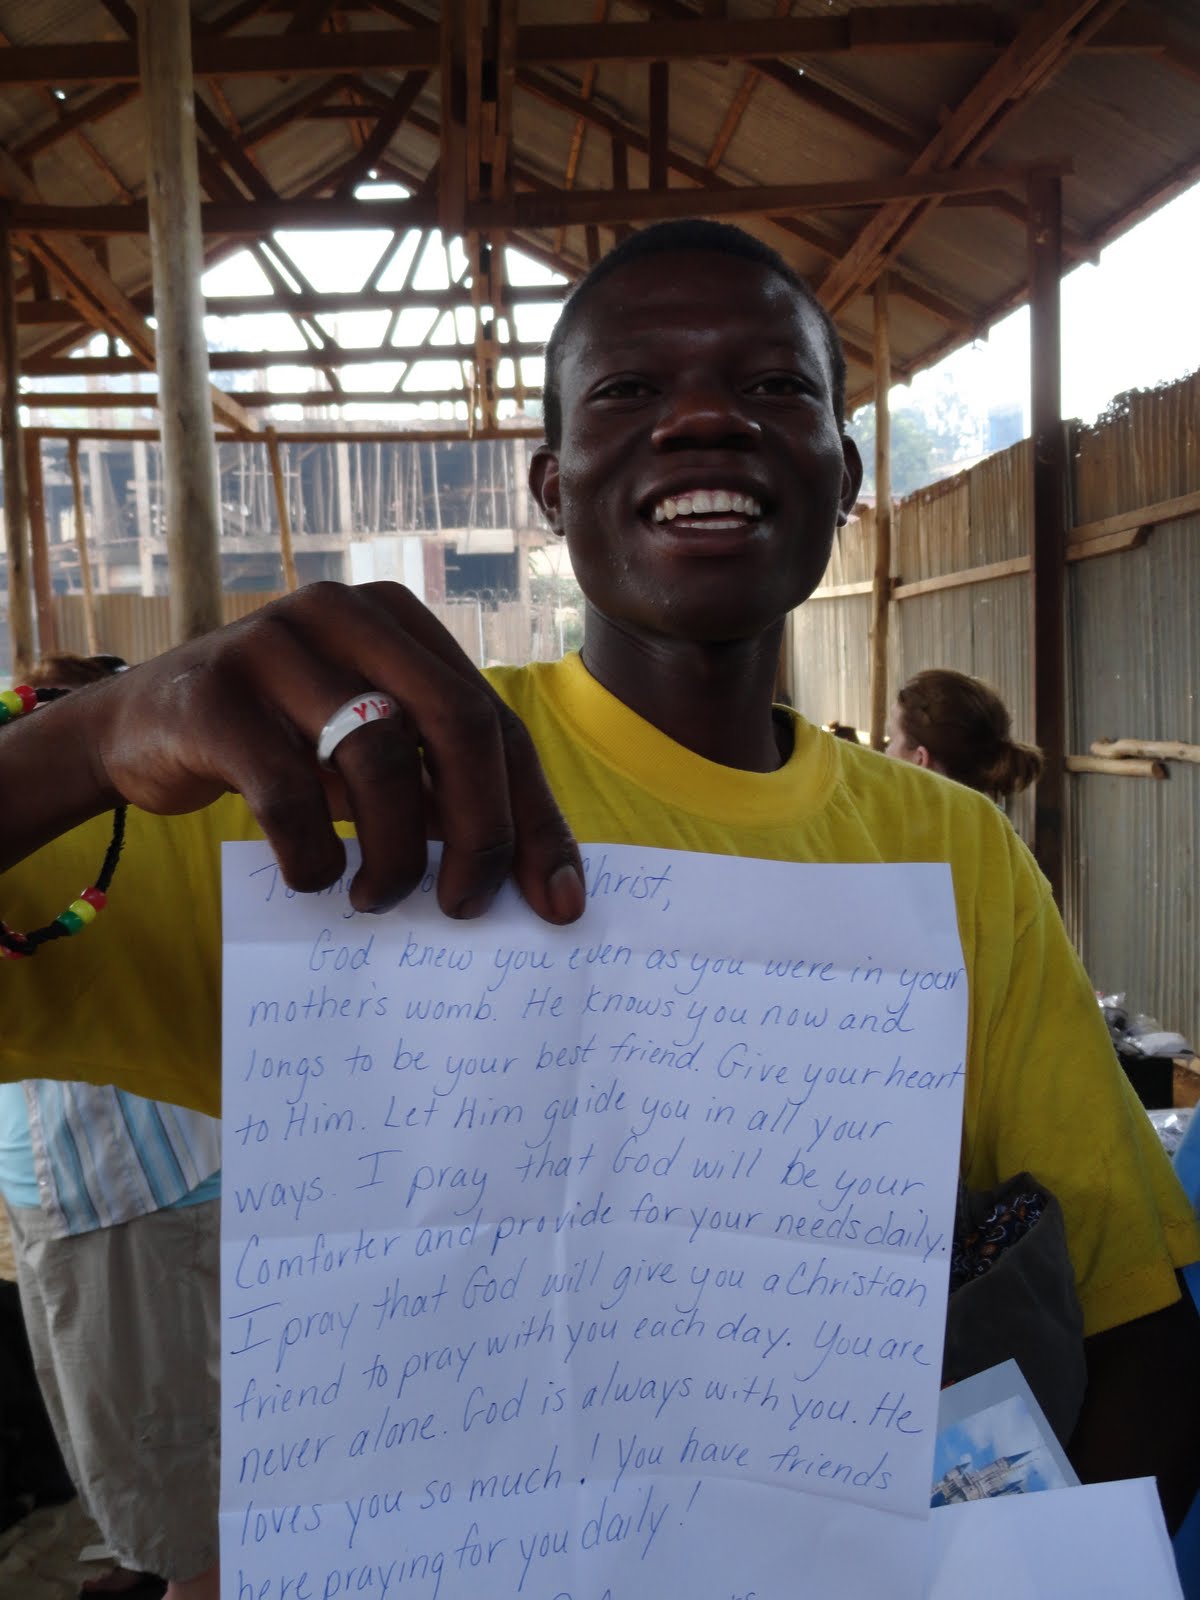 To my Christ,
God knew you even as you were in your
mother's womb. He knows you now and
longs to be your best friend. Give your heart
to Him. Let Him guide you in all your
ways. I pray that God will be your
Comforter and provide for your needs daily.
I pray that God will give you a Christian
friend to pray with you each day. You are
never alone. God is always with you. He
loves you so much! You have friends
here praying for you daily!